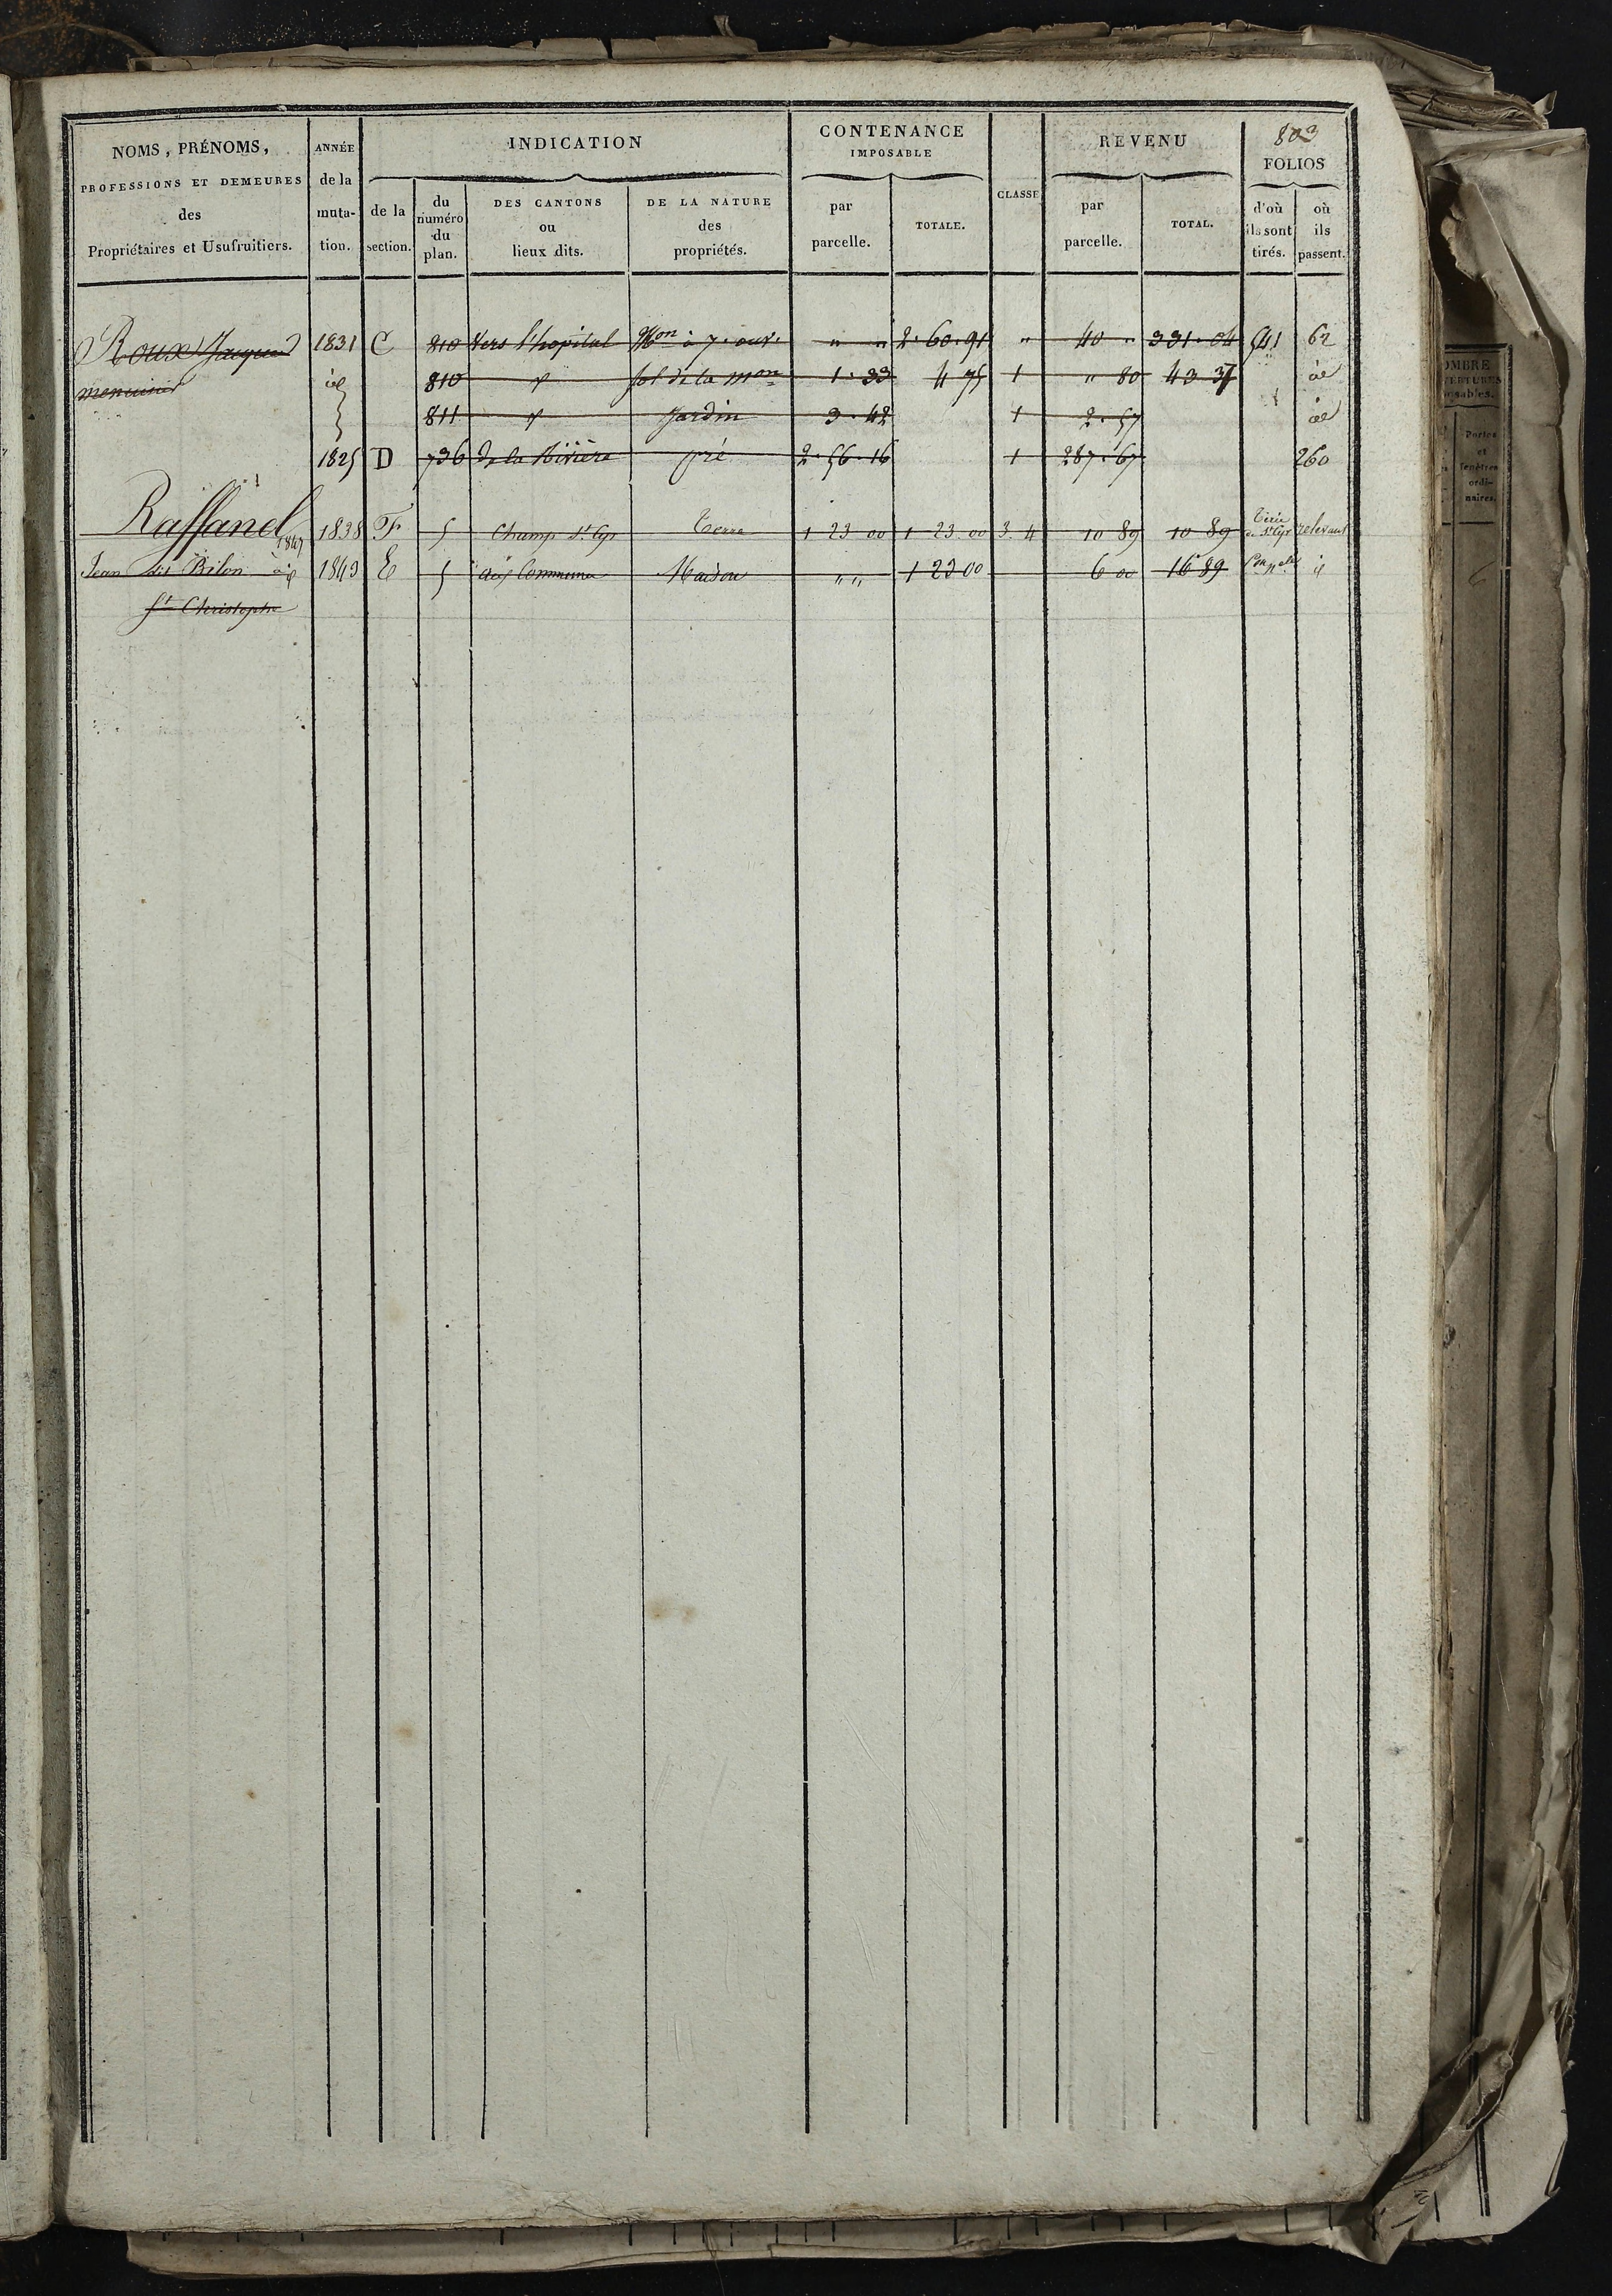 803
NOMS, PRÉNOMS,
PROFESSIONS ET DEMEURES
des
Propriétaires et Usufruitiers.
ANNÉE
de la
muta-
tion.
INDICATION
de la
section.
du
numéro
du
plan.
DES CANTONS
ou
lieux dits.
DE LA NATURE
des
propriétés.
CONTENANCE
IMPOSABLE
par
parcelle.
TOTALE.
CLASSE
REVENU
par
parcelle.
TOTAL.
FOLIOS
d'où
ils sont
tirés.
où
ils
passent.
Roux Jacques 1831 C 810 Vers l'hopital Mon à 7. ouv. " " 2. 60. 91 " 40 " 331. 04 541 62
menuisier id 810 id sol de la mon 1. 33 4 75 1 " 80 43 37 id
811 id Jardin 3. 42 1 2. 57 id
1825 D 736 de la Rivière pré 2. 56. 16 1 287. 67 260
Raffanel 1847 1838 F 5 Champ St Cyr Terre 1 23 00 1 23 00 3. 4 10 89 10 89 de St Cyr relevant
Jean dit Bilon à 1843 E 5 aux Communes Maison " " 1 23 00 6 00 16 89
St Christophe
OMBRE
VERTURES
osables.
Portes
et
fenêtres
ordi-
naires.